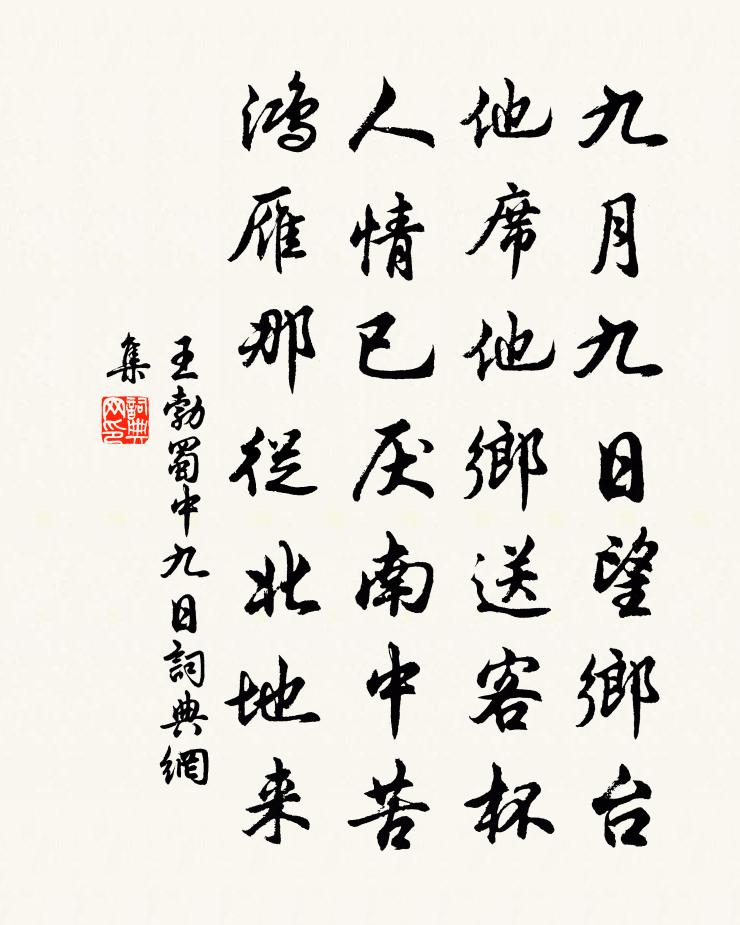 九月九日望鄉台
他席他鄉送客杯
人情已厌南中苦
鴻雁那從北地来
王勃蜀中九日詞典網
集
詞典
网印